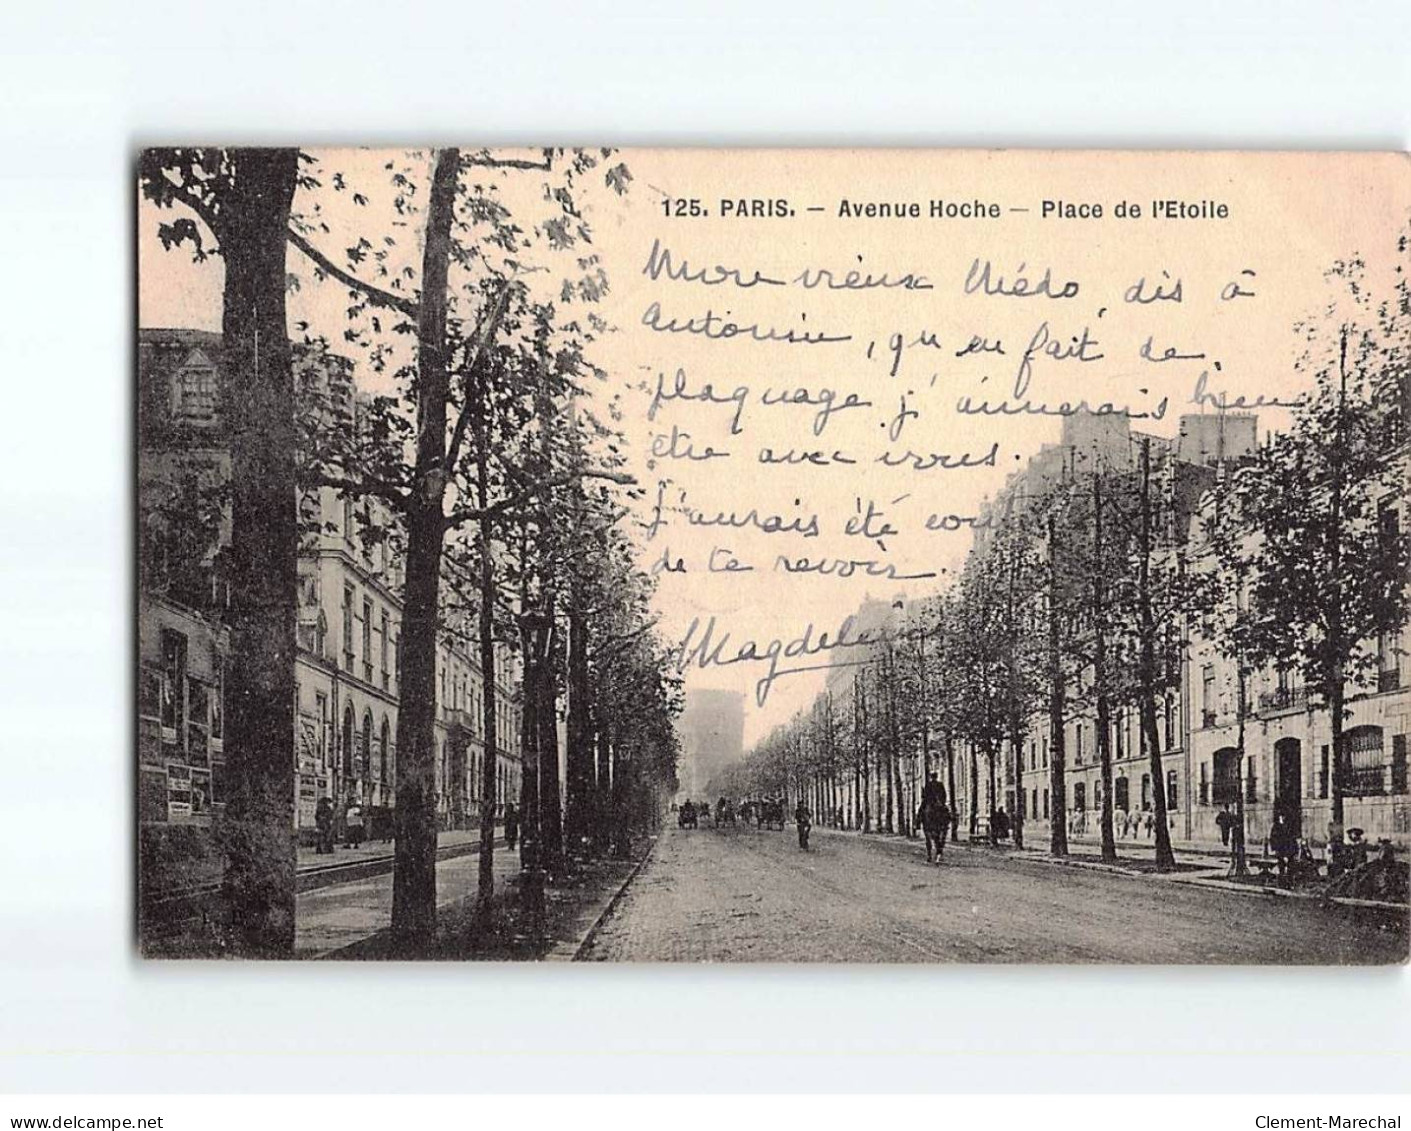 125. PARIS. — Avenue Hoche — Place de l'Etoile
Mon vieux Médo, dis à
Antonin, qu'en fait de
plaquage j'aimerais bien
être avec vous.
J'aurais été
de te revoir.
Magdeleine
www.delcampe.net
Clement-Marechal